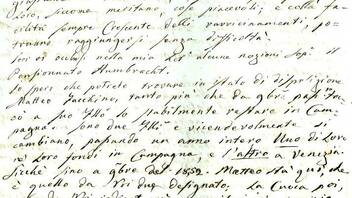 Loro, siccome meritano, cose piacevoli; e colla fa=
cilità sempre crescente delli ravvicinamenti, po=
tranno raggiungersi senza difficoltà.
nella mia alcune nozioni sopra il
Pensionnato Humbrecht.
Io sperò che potrete trovare in istato di disposizione
Matteo Facchino, tanto più che da 9bre passato
a suo stabilmente restare in Cam=
pagna. Sono due e vicendevolmente si
cambiano, passando un anno intero Uno di Loro
ne' Loro fondi in Campagna, e l'altro a Venezia.
Sicchè sino a 9bre del 1852. Matteo sta qui, che
è quello da Voi due designato. La Cuoca poi,